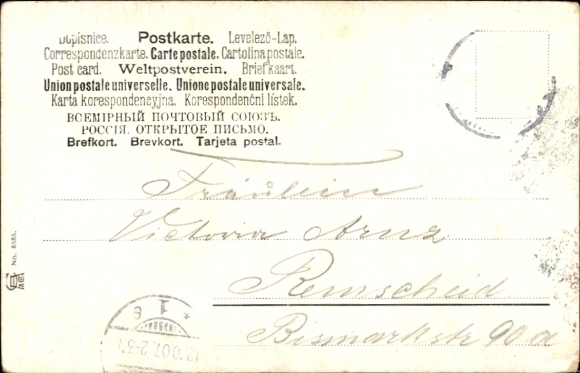 Dopisnice. Postkarte. Levelező-Lap.
Correspondenzkarte. Carte postale. Cartolina postale.
Post card. Weltpostverein. Briefkaart.
Union postale universelle. Unione postale universale.
Karta korespondencyjna. Korespondenční lístek.
ВСЕМІРНЫЙ ПОЧТОВЫЙ СОЮЗЪ.
РОССІЯ. ОТКРЫТОЕ ПИСЬМО.
Brefkort. Brevkort. Tarjeta postal.
Fräulein
Victoria Arnz
Remscheid
Bismarkstr 90a
No. 8385.